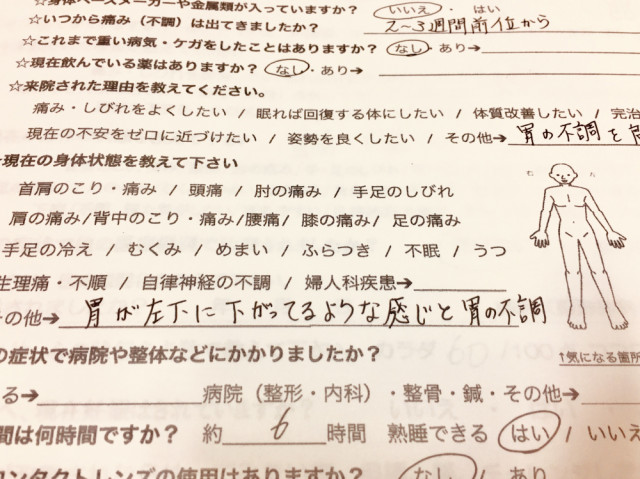 ☆身体ペースメーカーや金属類が入っていますか？ いいえ ・ はい
☆いつから痛み（不調）は出てきましたか？ 2～3週間前位から
☆これまで重い病気・ケガをしたことはありますか？ なし・あり→
☆現在飲んでいる薬はありますか？ なし・あり→
☆来院された理由を教えてください。
痛み・しびれをよくしたい / 眠れば回復する体にしたい / 体質改善したい / 完治
現在の不安をゼロに近づけたい / 姿勢を良くしたい / その他→ 胃の不調を
現在の身体状態を教えて下さい
首肩のこり・痛み / 頭痛 / 肘の痛み / 手足のしびれ
肩の痛み/背中のこり・痛み/腰痛/ 膝の痛み/ 足の痛み
手足の冷え / むくみ / めまい / ふらつき / 不眠 / うつ
生理痛・不順 / 自律神経の不調 / 婦人科疾患→
その他→ 胃が左下に下がってるような感じと胃の不調
の症状で病院や整体などにかかりましたか？
↑気になる箇所
る→ 病院（整形・内科）・整骨・鍼・その他→
間は何時間ですか？ 約 6 時間 熟睡できる はい / いいえ
コンタクトレンズの使用はありますか？ なし / あり